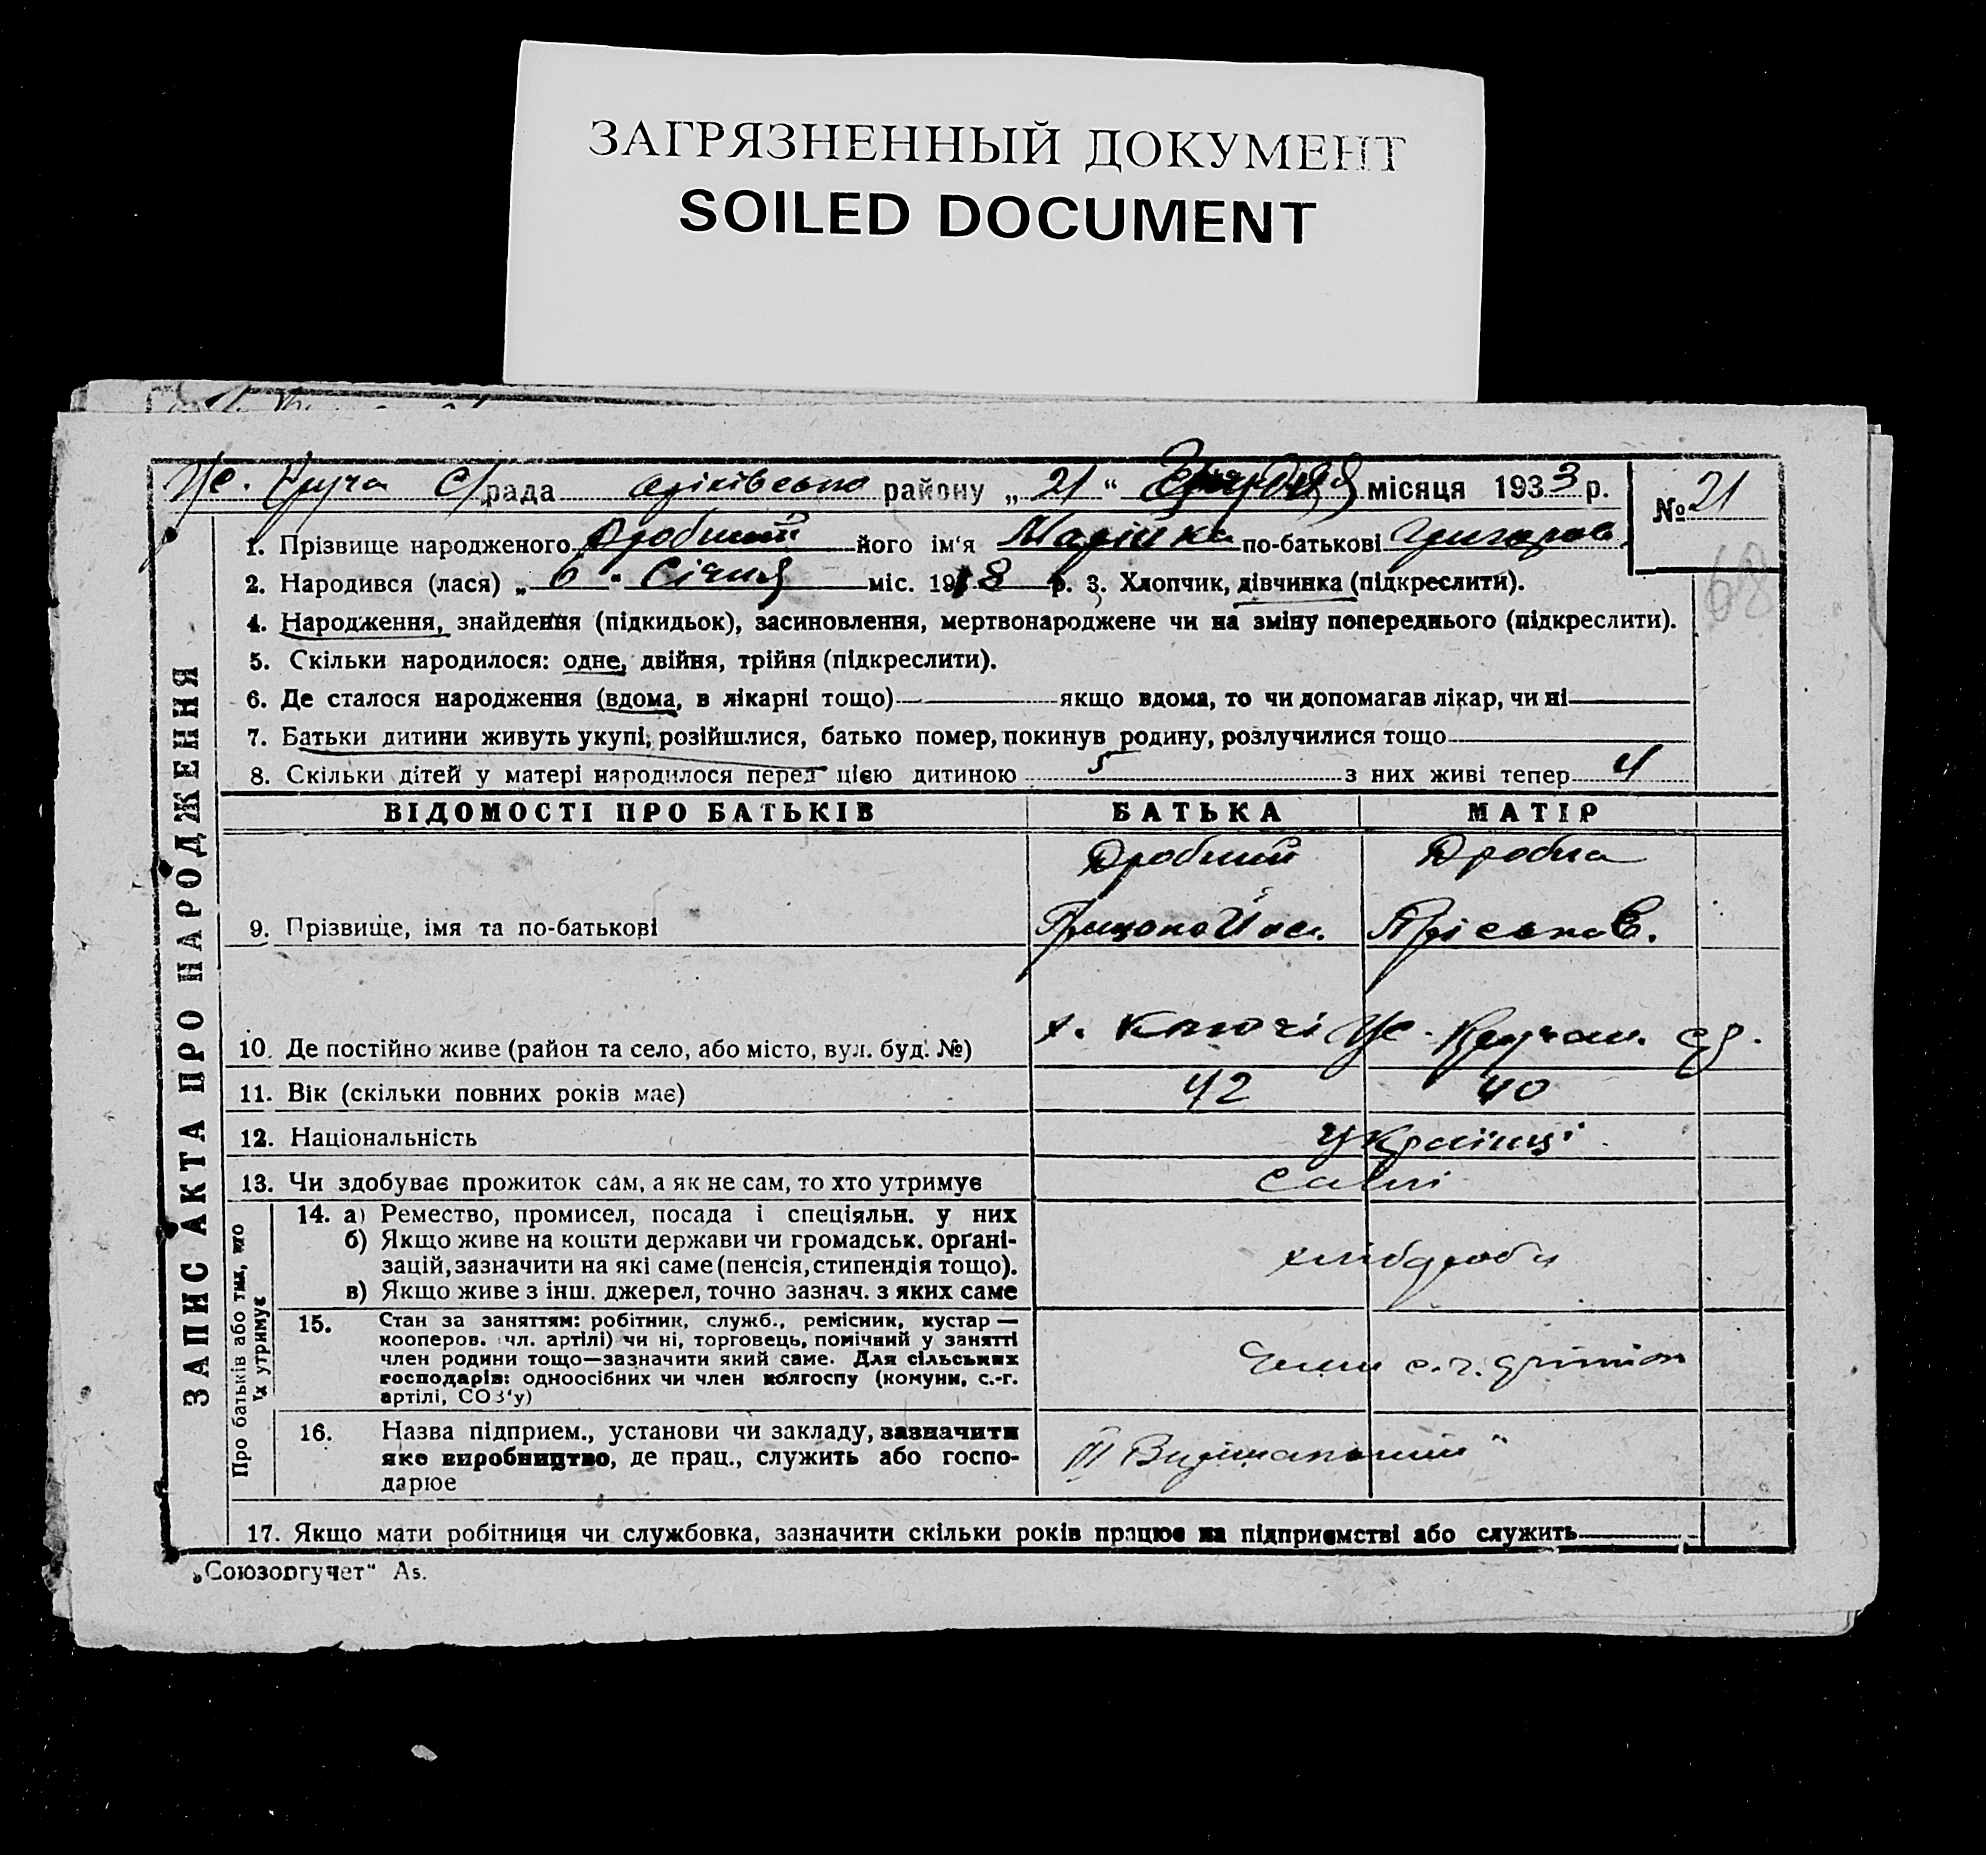 ЗАГРЯЗНЕННЫЙ ДОКУМЕНТ
SOILED DOCUMENT
Ус. Круча С/рада району „ 21 “ місяця 1933 р. № 21
68
ЗАПИС АКТА ПРО НАРОДЖЕННЯ
1. Прізвище народженого Дробний його ім'я Марійка по-батькові Григоров.
2. Народився (лася) „ 6 " Січня міс. 1918 р. 3. Хлопчик, дівчинка (підкреслити).
4. Народження, знайдення (підкидьок), засиновлення, мертвонароджене чи на зміну попереднього (підкреслити).
5. Скільки народилося: одне, двійня, трійня (підкреслити).
6. Де сталося народження (вдома, в лікарні тощо) якщо вдома, то чи допомагав лікар, чи ні
7. Батьки дитини живуть укупі, розійшлися, батько помер, покинув родину, розлучилися тощо
8. Скільки дітей у матері народилося перед цією дитиною 5 з них живі тепер 4
ВІДОМОСТІ ПРО БАТЬКІВ БАТЬКА МАТІР
Дробний Дробна
9. Прізвище, імя та по-батькові Грицько Йос. Пріська В.
10. Де постійно живе (район та село, або місто, вул. буд. №) х. Ключі Ус. Кручан. с/р.
11. Вік (скільки повних років має) 42 40
12. Національність Українці
13. Чи здобуває прожиток сам, а як не сам, то хто утримує Самі
Про батьків або тих, що їх утримує
14. а) Ремество, промисел, посада і спеціяльн. у них
б) Якщо живе на кошти держави чи громадськ. органі-
зацій, зазначити на які саме (пенсія, стипендія тощо).
в) Якщо живе з інш. джерел, точно зазнач. з яких саме
хлібороби
15. Стан за заняттям: робітник, служб., ремісник, кустар —
кооперов. чл. артілі) чи ні, торговець, помічний у занятті
член родини тощо—зазначити який саме. Для сільських
господарів: одноосібних чи член колгоспу (комуни, с.-г.
артілі, СОЗ'у)
Члени с.г.
16. Назва підприєм., установи чи закладу, зазначити
яке виробництво, де прац., служить або госпо-
дарює
17. Якщо мати робітниця чи службовка, зазначити скільки років працює на підприємстві або служить
„Союзоргучет" As.